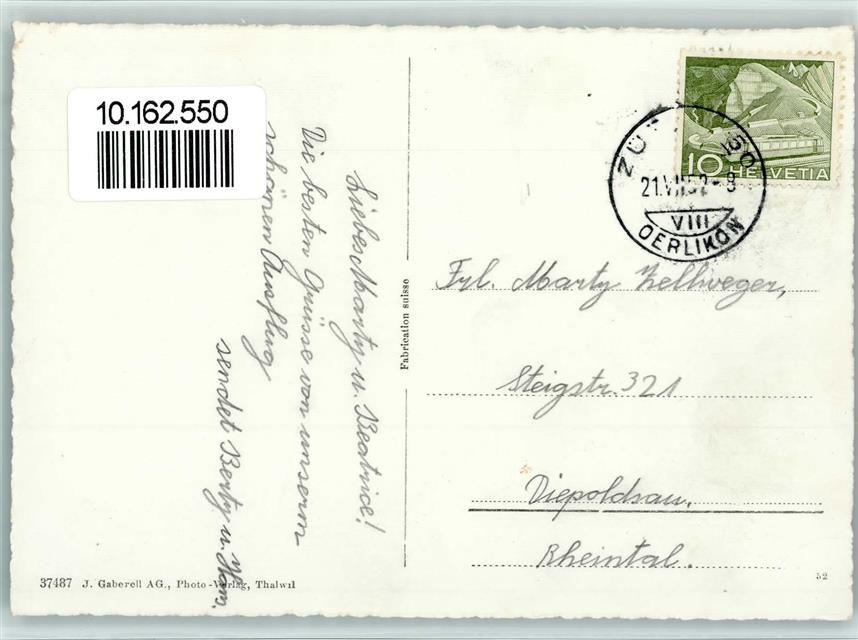 10.162.550
Liebes Marty u. Beatrice!
Die besten Grüsse von unserm
schönen Ausflug
sendet Berty u. Hans.
Fabrication suisse
10 HELVETIA
21.VII.52-8
VIII
OERLIKON
Frl. Marty Zellweger,
Steigstr. 321
Diepoldsau.
Rheintal.
37487 J. Gaberell AG., Photo-Verlag, Thalwil
52